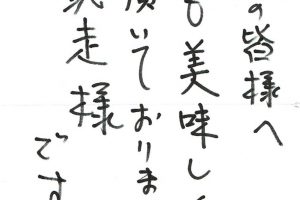 の皆様へ
も美味しく
頂いておりま
走様
です